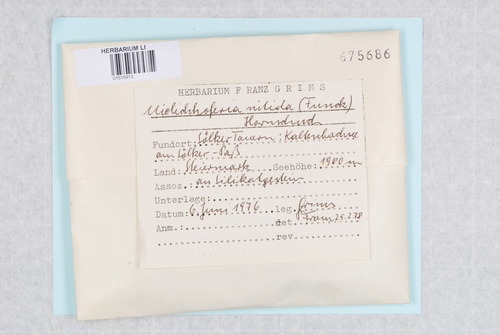 HERBARIUM LI
675686
HERBARIUM FRANZ GRIMS
Mielichhoferia nitida (Funck)
Hornschuch
Fundort: Sölker-Tauern; Kaltenbachsee
am Sölker-Paß
Land: Steiermark Seehöhe: 1900 m
Assoz.: an Silikatgestein
Unterlage:
Datum: 6. Juni 1976 leg. Grims
Anm.: det. 25.2.78
rev.